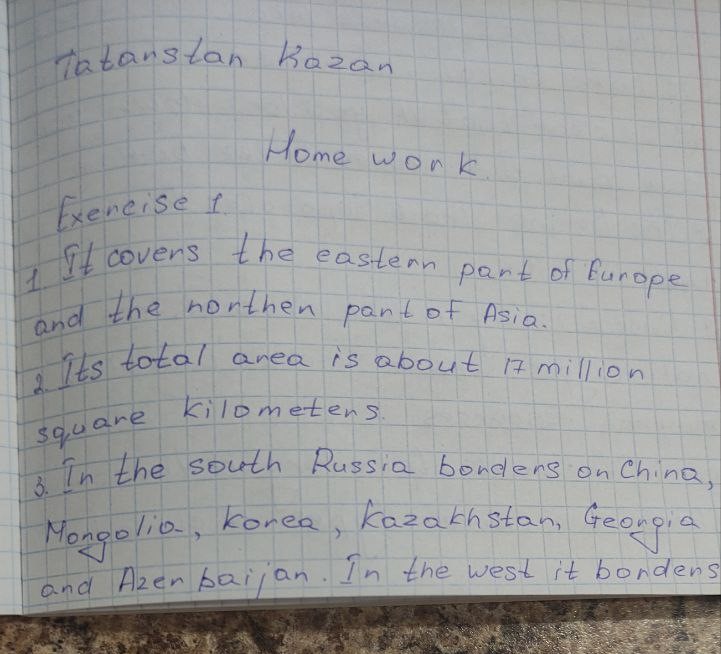 Tatarstan Kazan
Home work.
Exercise 1.
1. It covers the eastern part of Europe
and the northen part of Asia.
2. Its total area is about 17 million
square kilometers.
3. In the south Russia borders on China,
Mongolia, Korea, Kazakhstan, Georgia
and Azerbaijan. In the west it borders